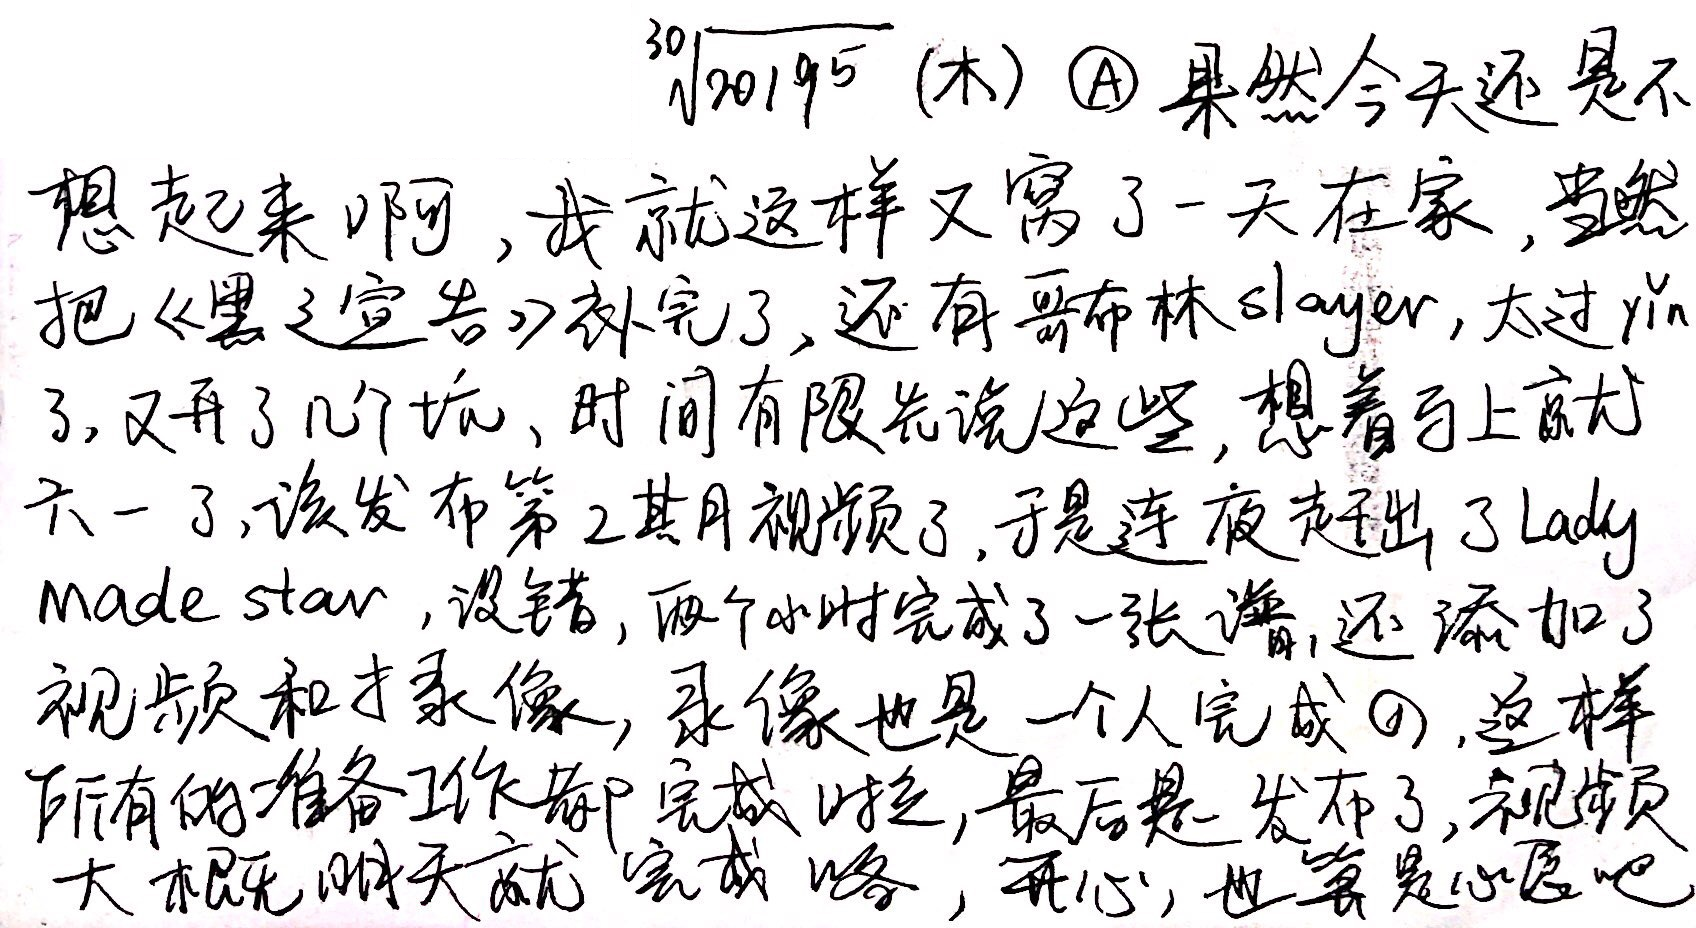 ³⁰√20195 (木) Ⓐ 果然今天还是不
想起来啊,我就这样又窝了一天在家,当然
把《黑之宣告》补完了、还有哥布林slayer,太过yǐn
了,又开了几个坑、时间有限先说这些,想着马上就
六一了,该发布第2期视频了,于是连夜赶出了Lady
made star,没错,两个小时完成了一张谱,还添加了
视频和才录像,录像也是一个人完成の,这样
所有的准备工作都完成时,最后是发布了,视频
大概明天就完成咯,开心,也算是心愿吧